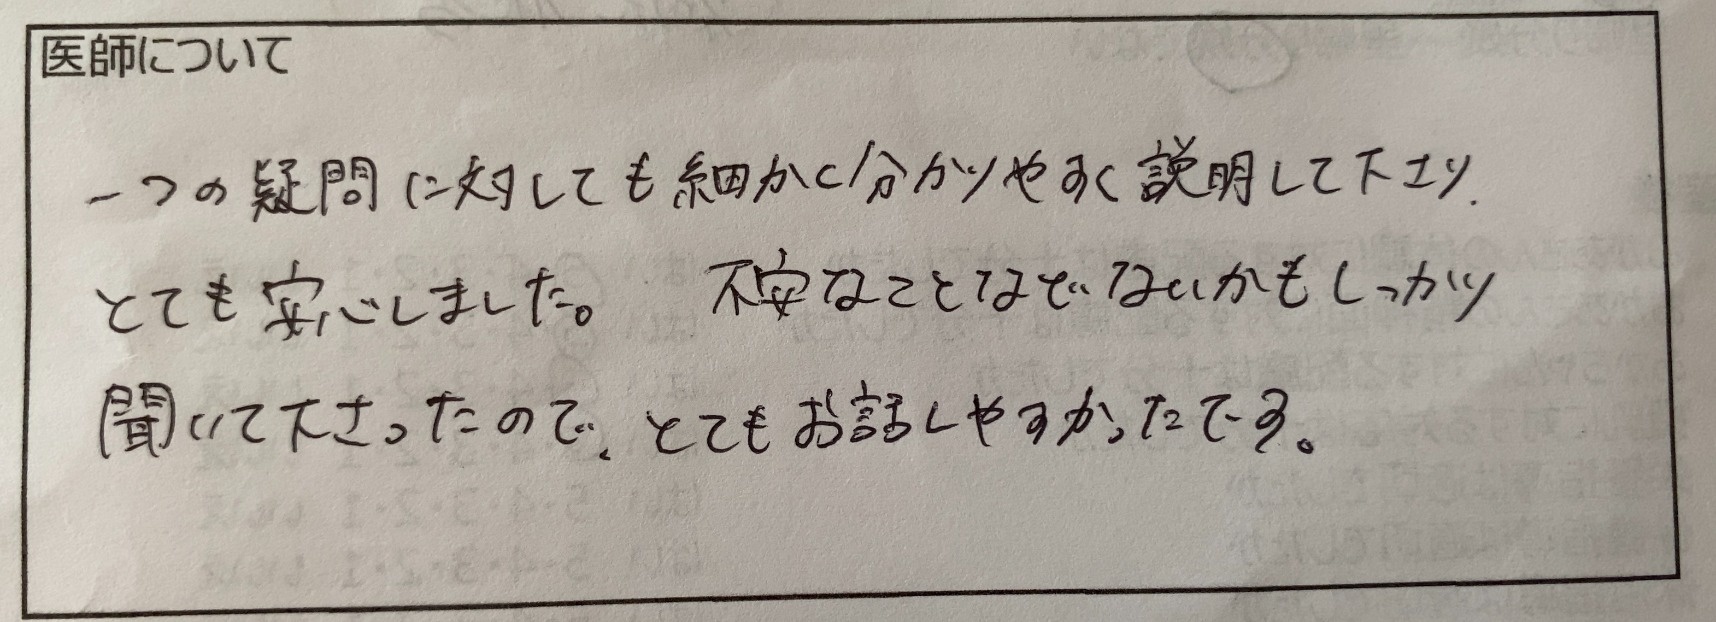 医師について
一つの疑問に対しても細かく分かりやすく説明して下さり、
とても安心しました。 不安なことなどないかもしっかり
聞いて下さったので、とてもお話しやすかったです。